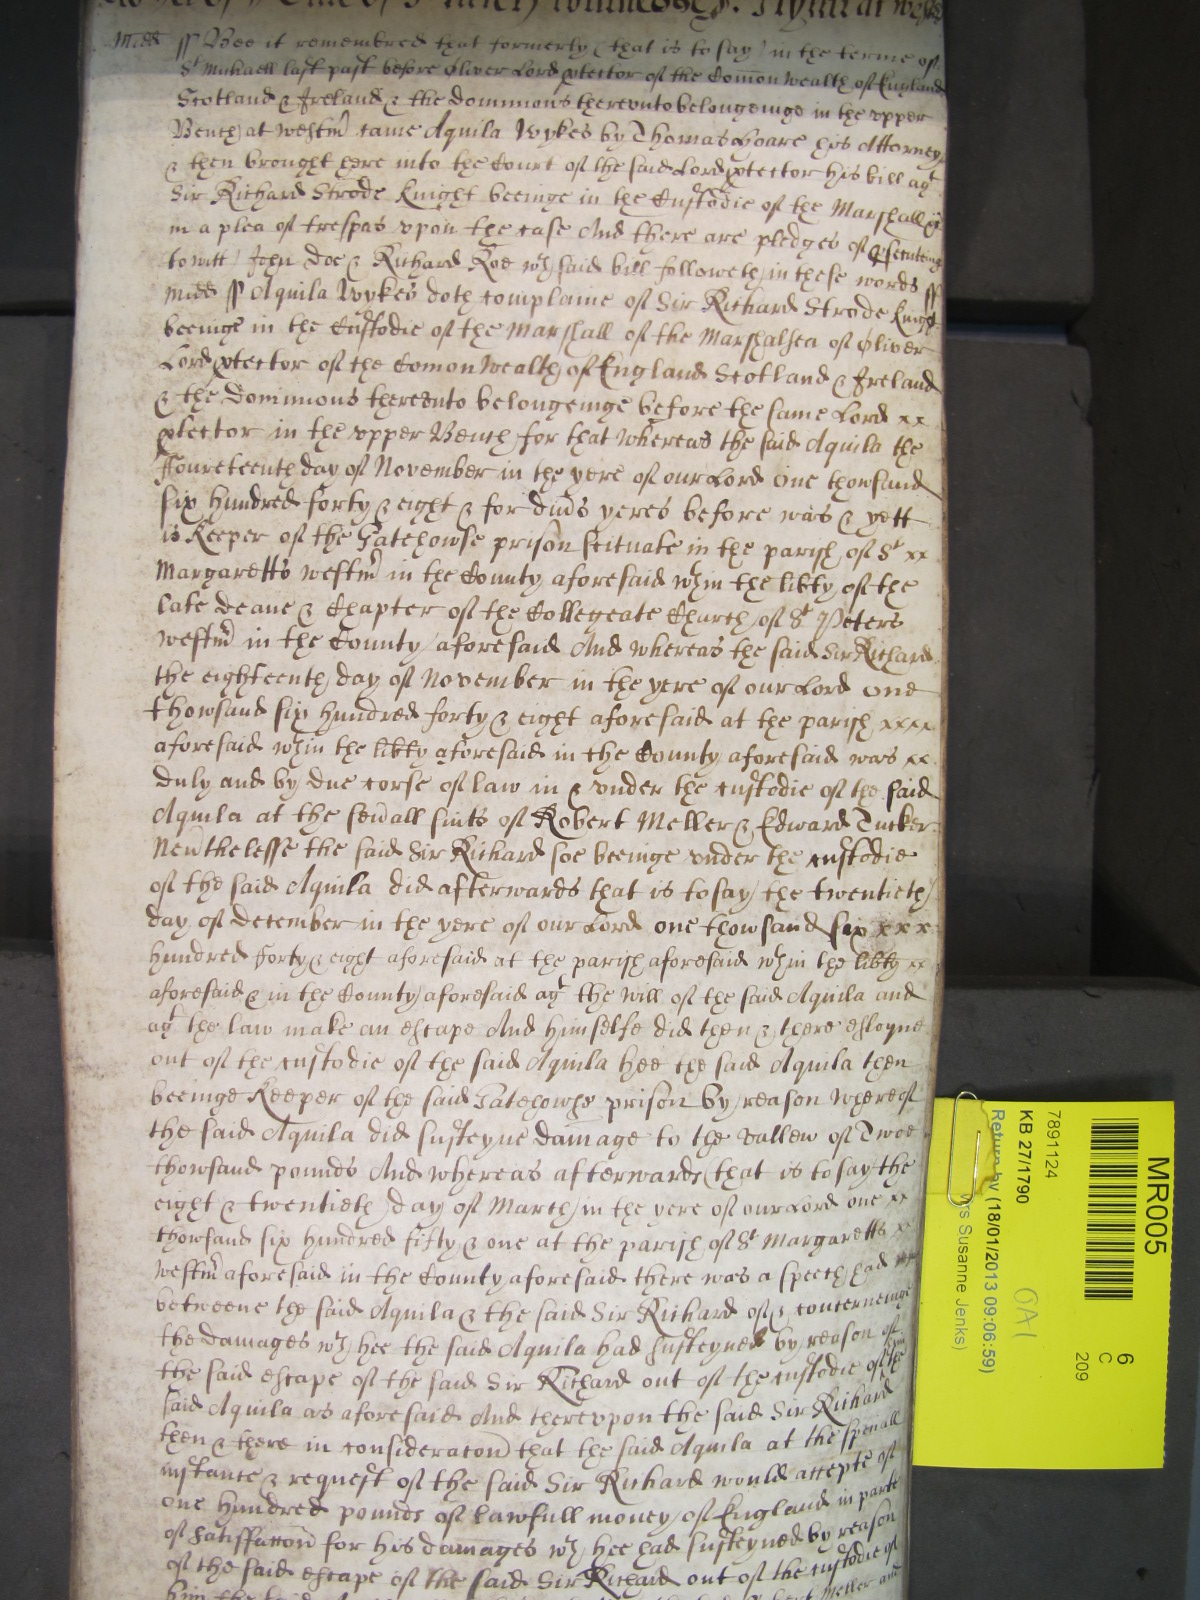 Witnesses. Hyllar at West
Midd ss Bee it remembred that formerly (that is to say) in the terme of
St Michaell last past before Oliver Lord ptector of the Comon wealth of England
Scotland & Ireland & the dominions therevnto belongeinge in the vpper
Bench at westmr came Aquila Wykes by Thomas Hoare his Attorney
& then brought here into the Court of the said Lord ptector his bill agt
Sir Richard Strode Knight beeinge in the Custodie of the Marshall &c
in a plea of trespas vpon the case And there are pledges of psecuting
to witt John Doe & Richard Roe wch said bill followeth in these words ss
Midd ss Aquila Wykes doth complaine of Sir Richard Strode Knight
beeinge in the Custodie of the Marshall of the Marshalsea of Oliver
Lord ptector of the Comon wealth of England Scotland & Ireland
& the dominions therevnto belongeinge before the same Lord xx
ptector in the vpper Bench for that whereas the said Aquila the
ffoureteenth day of November in the yere of our Lord one thowsand
six hundred forty & eight & for diuds yeres before was & yett
is Keeper of the Gatehowse prison scituate in the parish of St xx
Margaretts westmr in the County aforesaid wthin the libty of the
late Deane & Chapter of the Collegeate Church of St Peters
westmr in the County aforesaid And whereas the said Sir Richard
the eighteenth day of November in the yere of our Lord one
thowsand six hundred forty & eight aforesaid at the parish xxxx
aforesaid wthin the libty aforesaid in the County aforesaid was xx
duly and by due corse of law in & vnder the custodie of the said
Aquila at the seuall suits of Robert Meller & Edward Tucker
Neuthelesse the said Sir Richard soe beeinge vnder the custodie
of the said Aquila did afterwards that is to say the twentieth
day of December in the yere of our Lord one thowsand six xxx
hundred forty & eight aforesaid at the parish aforesaid wthin the libty xx
aforesaid & in the County aforesaid agt the will of the said Aquila and
agt the law make an escape And himselfe did then & there esloyne
out of the custodie of the said Aquila hee the said Aquila then
beeinge Keeper of the said Gatehowse prison by reason whereof
the said Aquila did susteyne damage to the vallew of Twoe
thowsand pounds And whereas afterwards (that is to say the
eight & twentieth day of March in the yere of our Lord one xx
thowsand six hundred fifty & one at the parish of St Margaretts x
westmr aforesaid in the County aforesaid there was a speech had
betweene the said Aquila & the said Sir Richard of & concerneinge
the damages wch hee the said Aquila had susteyned by reason of
the said escape of the said Sir Richard out of the custodie of the
said Aquila as aforesaid And therevpon the said Sir Richard
then & there in consideracon that the said Aquila at the speciall
instance & request of the said Sir Richard would accepte of
one hundred pounds of lawfull money of England in parte
of satisfaccon for his damages wch hee had susteyned by reason
of the said escape of the said Sir Richard out of the custodie of
him the Robert Meller and
MR005
6
C
209
7891124
KB 27/1790
Return by (18/01/2013 09:06:59)
Mrs Susanne Jenks)
OA1